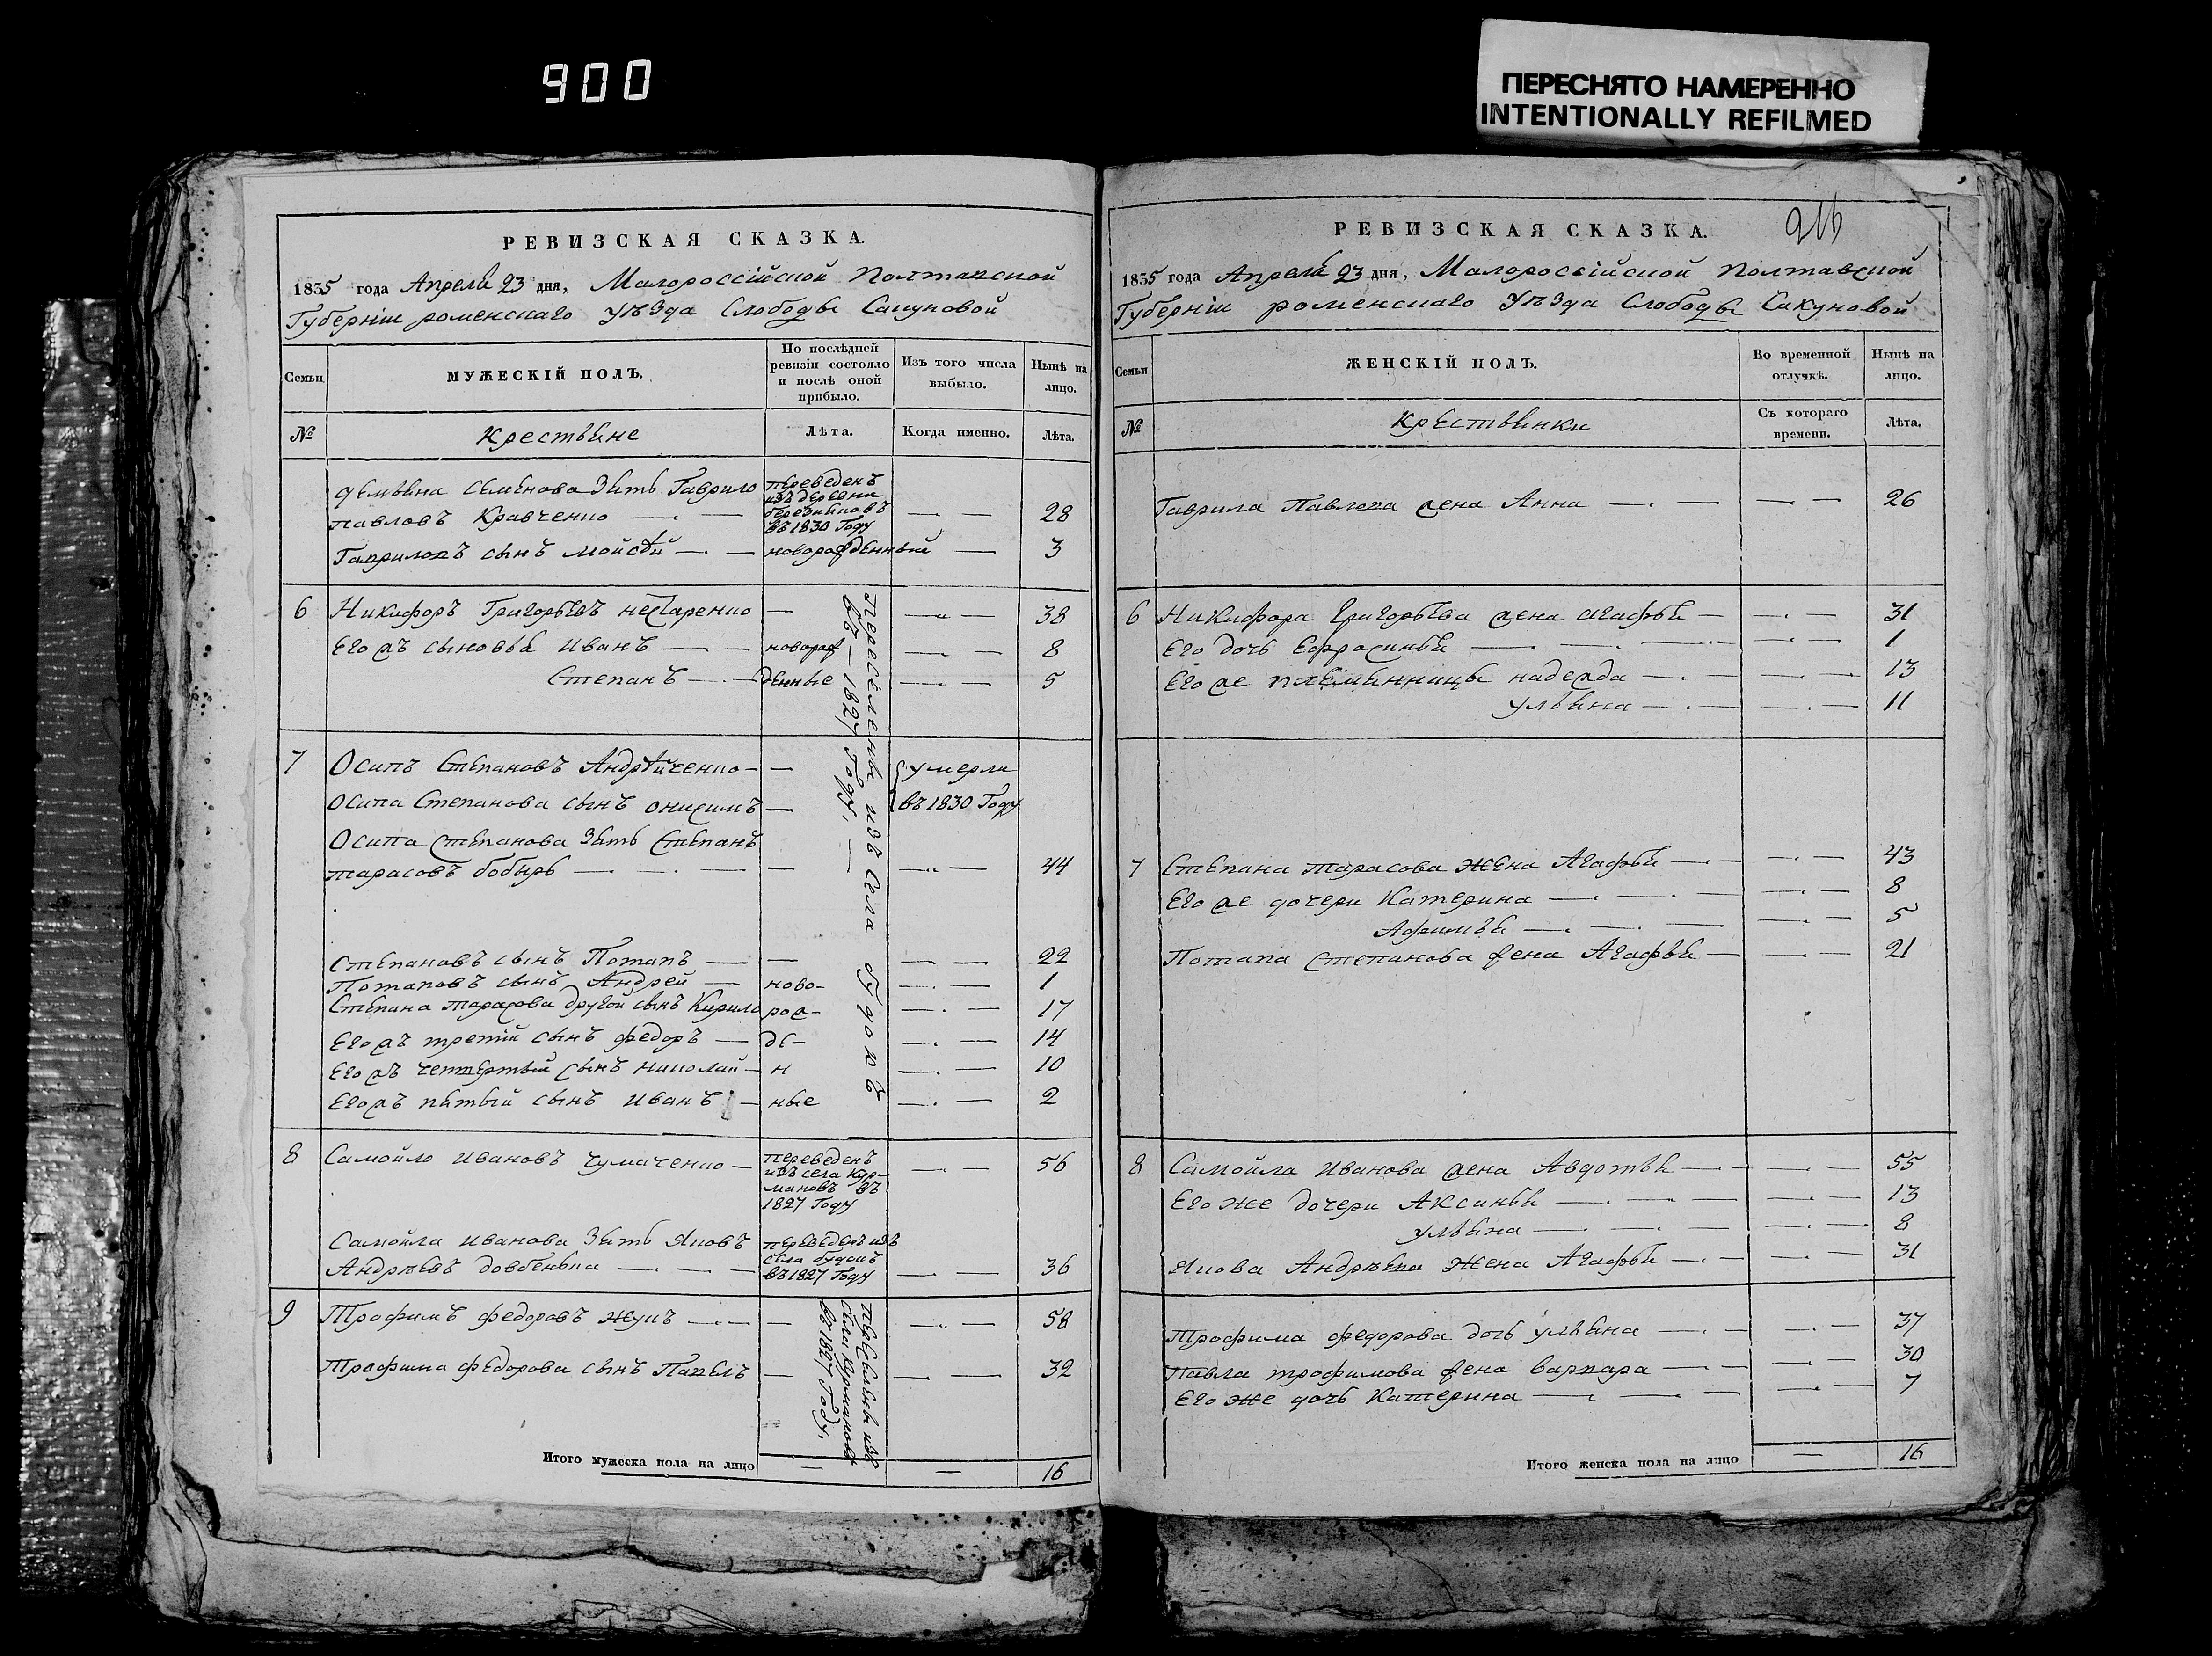 900
ПЕРЕСНЯТО НАМЕРЕННО
INTENTIONALLY REFILMED
РЕВИЗСКАЯ СКАЗКА.
1835 года Апреля 23 дня, Малороссійской Полтавской
Губерніи роменскаго уѣзда Слободы Сакуновой
Семьи
МУЖЕСКІЙ ПОЛЪ.
По послѣдней
ревизіи состояло
и послѣ оной
прибыло.
Изъ того числа
выбыло.
Нынѣ на
лицо.
№
крестьяне
Лѣта.
Когда именно.
Лѣта.
Демьяна Семенова Зять Гаврило
павловъ Кравченко
переведенъ
изъ деревни
въ 1830 Году
28
Гавриловъ сынъ мойсѣй
новорожденный
3
6 Никифоръ Григорьевъ нестаренко — 38
Его жъ сыновья иванъ — новорож 8
Степанъ — денные 5
переселены изъ Села будокъ
въ — 1827 Году.
7 Осипъ Степановъ Андрѣйченко — умерли
Осипа Степанова сынъ онисимъ — въ 1830 Году
Осипа Степанова Зять Степанъ
тарасовъ бобырь — 44
Степановъ сынъ Потапъ — 22
Потаповъ сынъ Андрей — ново- 1
Степана тарасова другой сынъ Кирило рож- 17
Его жъ третій сынъ федоръ — де- 14
Его жъ четвертый сынъ николай — н 10
Его жъ пятый сынъ иванъ — ные 2
8 Самойло ивановъ чумаченко —
переведенъ
изъ села Кур-
мановъ въ
1827 Году
56
Самойла иванова Зять Яковъ
Андрѣевъ довбенька
переведенъ изъ
села будокъ
въ 1827 Году
36
9 Трофимъ федоровъ жукъ — 58
Трофима федорова сынъ Павелъ — 32
переведены изъ
села Курмановъ
въ 1827 Году.
Итого мужеска пола на лицо — — 16
РЕВИЗСКАЯ СКАЗКА.
216
1835 года Апреля 23 дня, Малороссійской полтавской
Губерніи роменскаго уѣзда Слободы Сакуновой
Семьи
ЖЕНСКІЙ ПОЛЪ.
Во временной
отлучкѣ.
Нынѣ на
лицо.
№
крестьянки
Съ котораго
времени.
Лѣта.
Гаврила Павлова жена Анна — 26
6 Никифора Григорьева жена агафья — 31
Его дочь Ефросинья — 1
Его же племянницы надежда — 13
ульяна — 11
7 Степана тарасова жена Агафья — 43
Его же дочери Катерина — 8
Афимья — 5
Потапа степанова жена Агафья — 21
8 Самойла иванова жена Авдотья — 55
Его же дочери Аксинья — 13
ульяна — 8
Якова Андрѣева жена Агафья — 31
Трофима федорова дочь ульяна — 37
Павла трофимова жена варвара — 30
Его же дочь Катерина — 7
Итого женска пола на лицо — 16